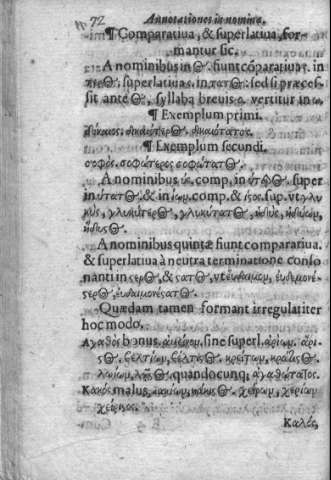 72 Annotationes in nomina.
¶ Comparatiua, & superlatiua, for-
mantur sic.
A nominibus in ος. fiunt cõparatiuas. in
τερος; superlatiuas. in τατος: sed si præces-
sit ante ος, syllaba breuis o vertitur in ω
¶ Exemplum primi.
δίκαιος, δικαιότερος, δικαιότατος.
¶ Exemplum secundi.
σοφός, σοφώτερος σοφώτατος.
A nominibus ύς. comp. in ύτερος. super
in ύτατος. & in ίων. comp. & ιςος. sup. vt γλυ
κύς, γλυκύτερος, γλυκύτατος, ἡδύς, ἡδίων,
ἥδιςος.
A nominibus quintæ fiunt comparatiua
& superlatiua à neutra terminatione conso
nanti in ςερος, & ςατος, vt εὐδαίμων, εὐδαιμονέ-
ςερος, εὐδαιμονέςατος.
Quædam tamen formant irregulariter
hoc modo.
Αγαθὸς bonus. ἀμείνων. sine superl. ἀρίων. ἄρι-
ςος, βελτίων, βέλτιςος, κρείτων, κράτιςος,
λωίων, λῷςος, quandocunq; ἀγαθώτατος.
Κακὸς malus, κακίων, κάκιςος. χείρων, χερίων
χείριςος.
Καλός,